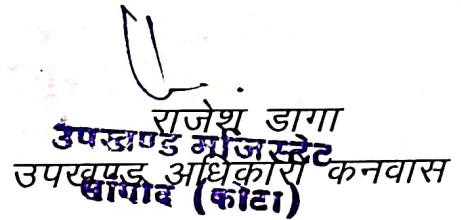 राजेश डागा
उपखण्ड मजिस्ट्रेट
उपखण्ड अधिकारी कनवास
सांगोद (कोटा)